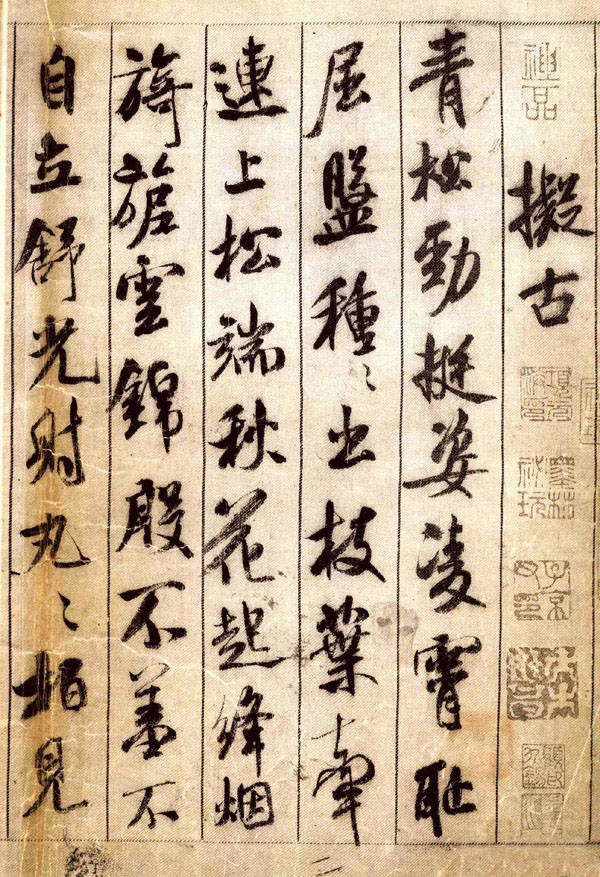 神品
擬古
墨林
祕玩
青松勁挺姿凌霄恥
屈盤種〻出枝葉牽
連上松端秋花起絳烟
旖旎雲錦殷不羞不
自立舒光射丸〻柏見
二